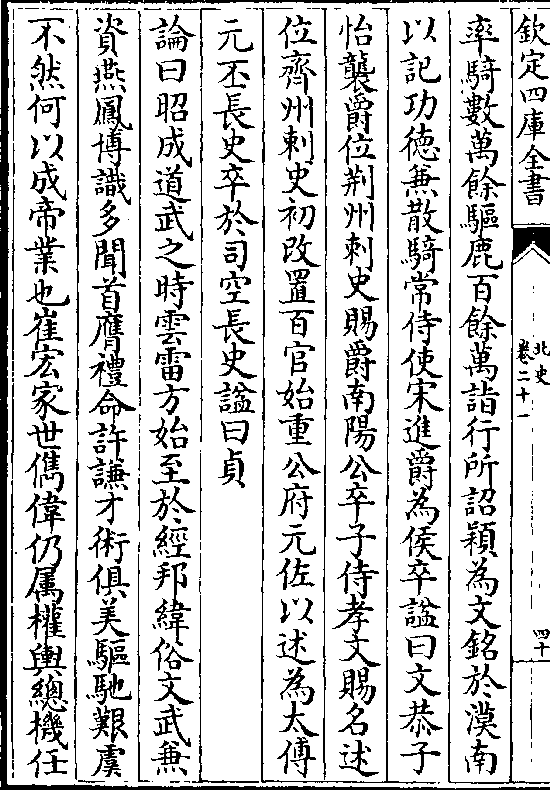 欽定四庫全書
北史
卷二十一
四十
率騎數萬餘驅鹿百餘萬詣行所詔穎為文銘於漠南
以記功徳無散騎常侍使宋進爵為侯卒諡曰文恭子
怡襲爵位荆州刺史賜爵南陽公卒子侍孝文賜名述
位齊州刺史初改置百官始重公府元佐以述為太傅
元丕長史卒於司空長史諡曰貞
論曰昭成道武之時雲雷方始至於經邦緯俗文武兼
資燕鳳博識多聞首膺禮命許謙才術俱美驅馳艱虞
不然何以成帝業也崔宏家世儁偉仍属權輿總機任